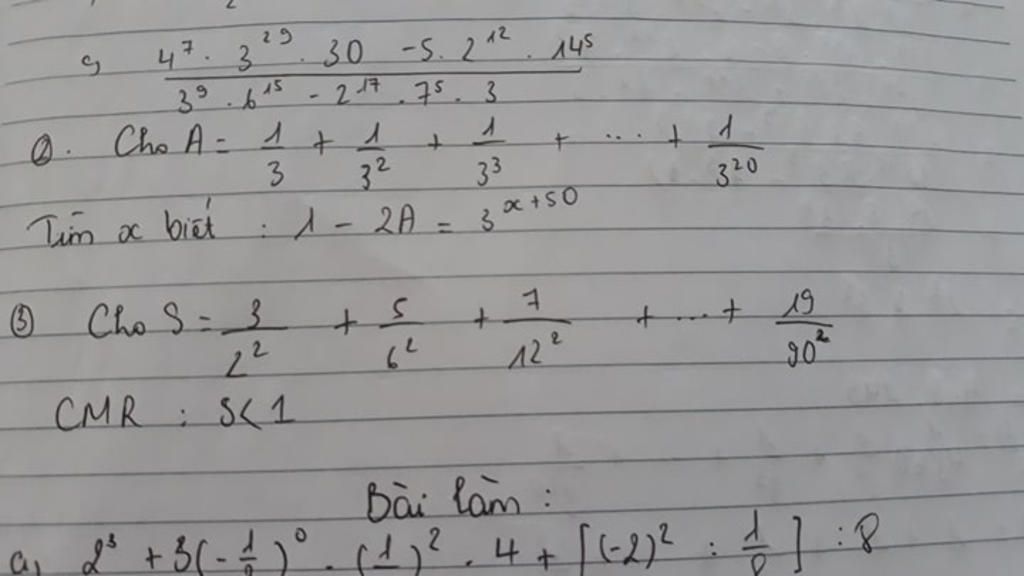 c, (4^7 . 3^29 . 30 - 5 . 2^12 . 14^5) / (3^9 . 6^15 - 2^17 . 7^5 . 3)
②. Cho A = 1/3 + 1/3^2 + 1/3^3 + ... + 1/3^20
Tìm x biết : 1 - 2A = 3^(x+50)
③ Cho S = 3/2^2 + 5/6^2 + 7/12^2 + ... + 19/90^2
CMR : S < 1
Bài làm :
a, 2^3 + 3(-1/)^0 . (1/)^2 . 4 + [(-2)^2 : 1/] : 8